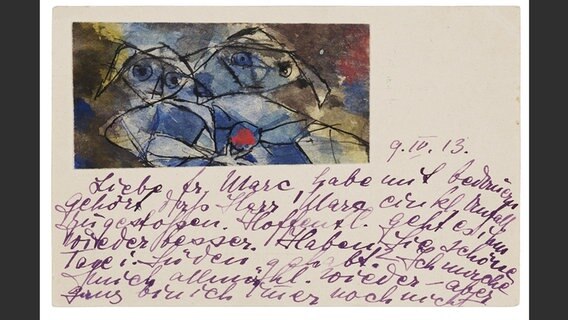 9. IV. 13.
Liebe Fr. Marc, habe mit bedauern
gehört dass Herr Marc ein kl. Unfall
zugestossen. Hoffentl. geht es ihm
wieder besser. Haben Sie schöne
Tage i. Süden gehabt. Ich mache
mich allmähl. wieder – aber
ganz bin ich immer noch nicht